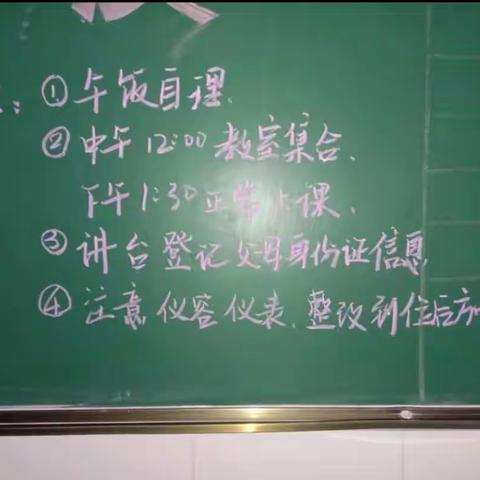 ：①午饭自理.
②中午12:00教室集合、
下午1:30正常上课、
③讲台登记父母身份证信息
④注意仪容仪表、整改到位后方